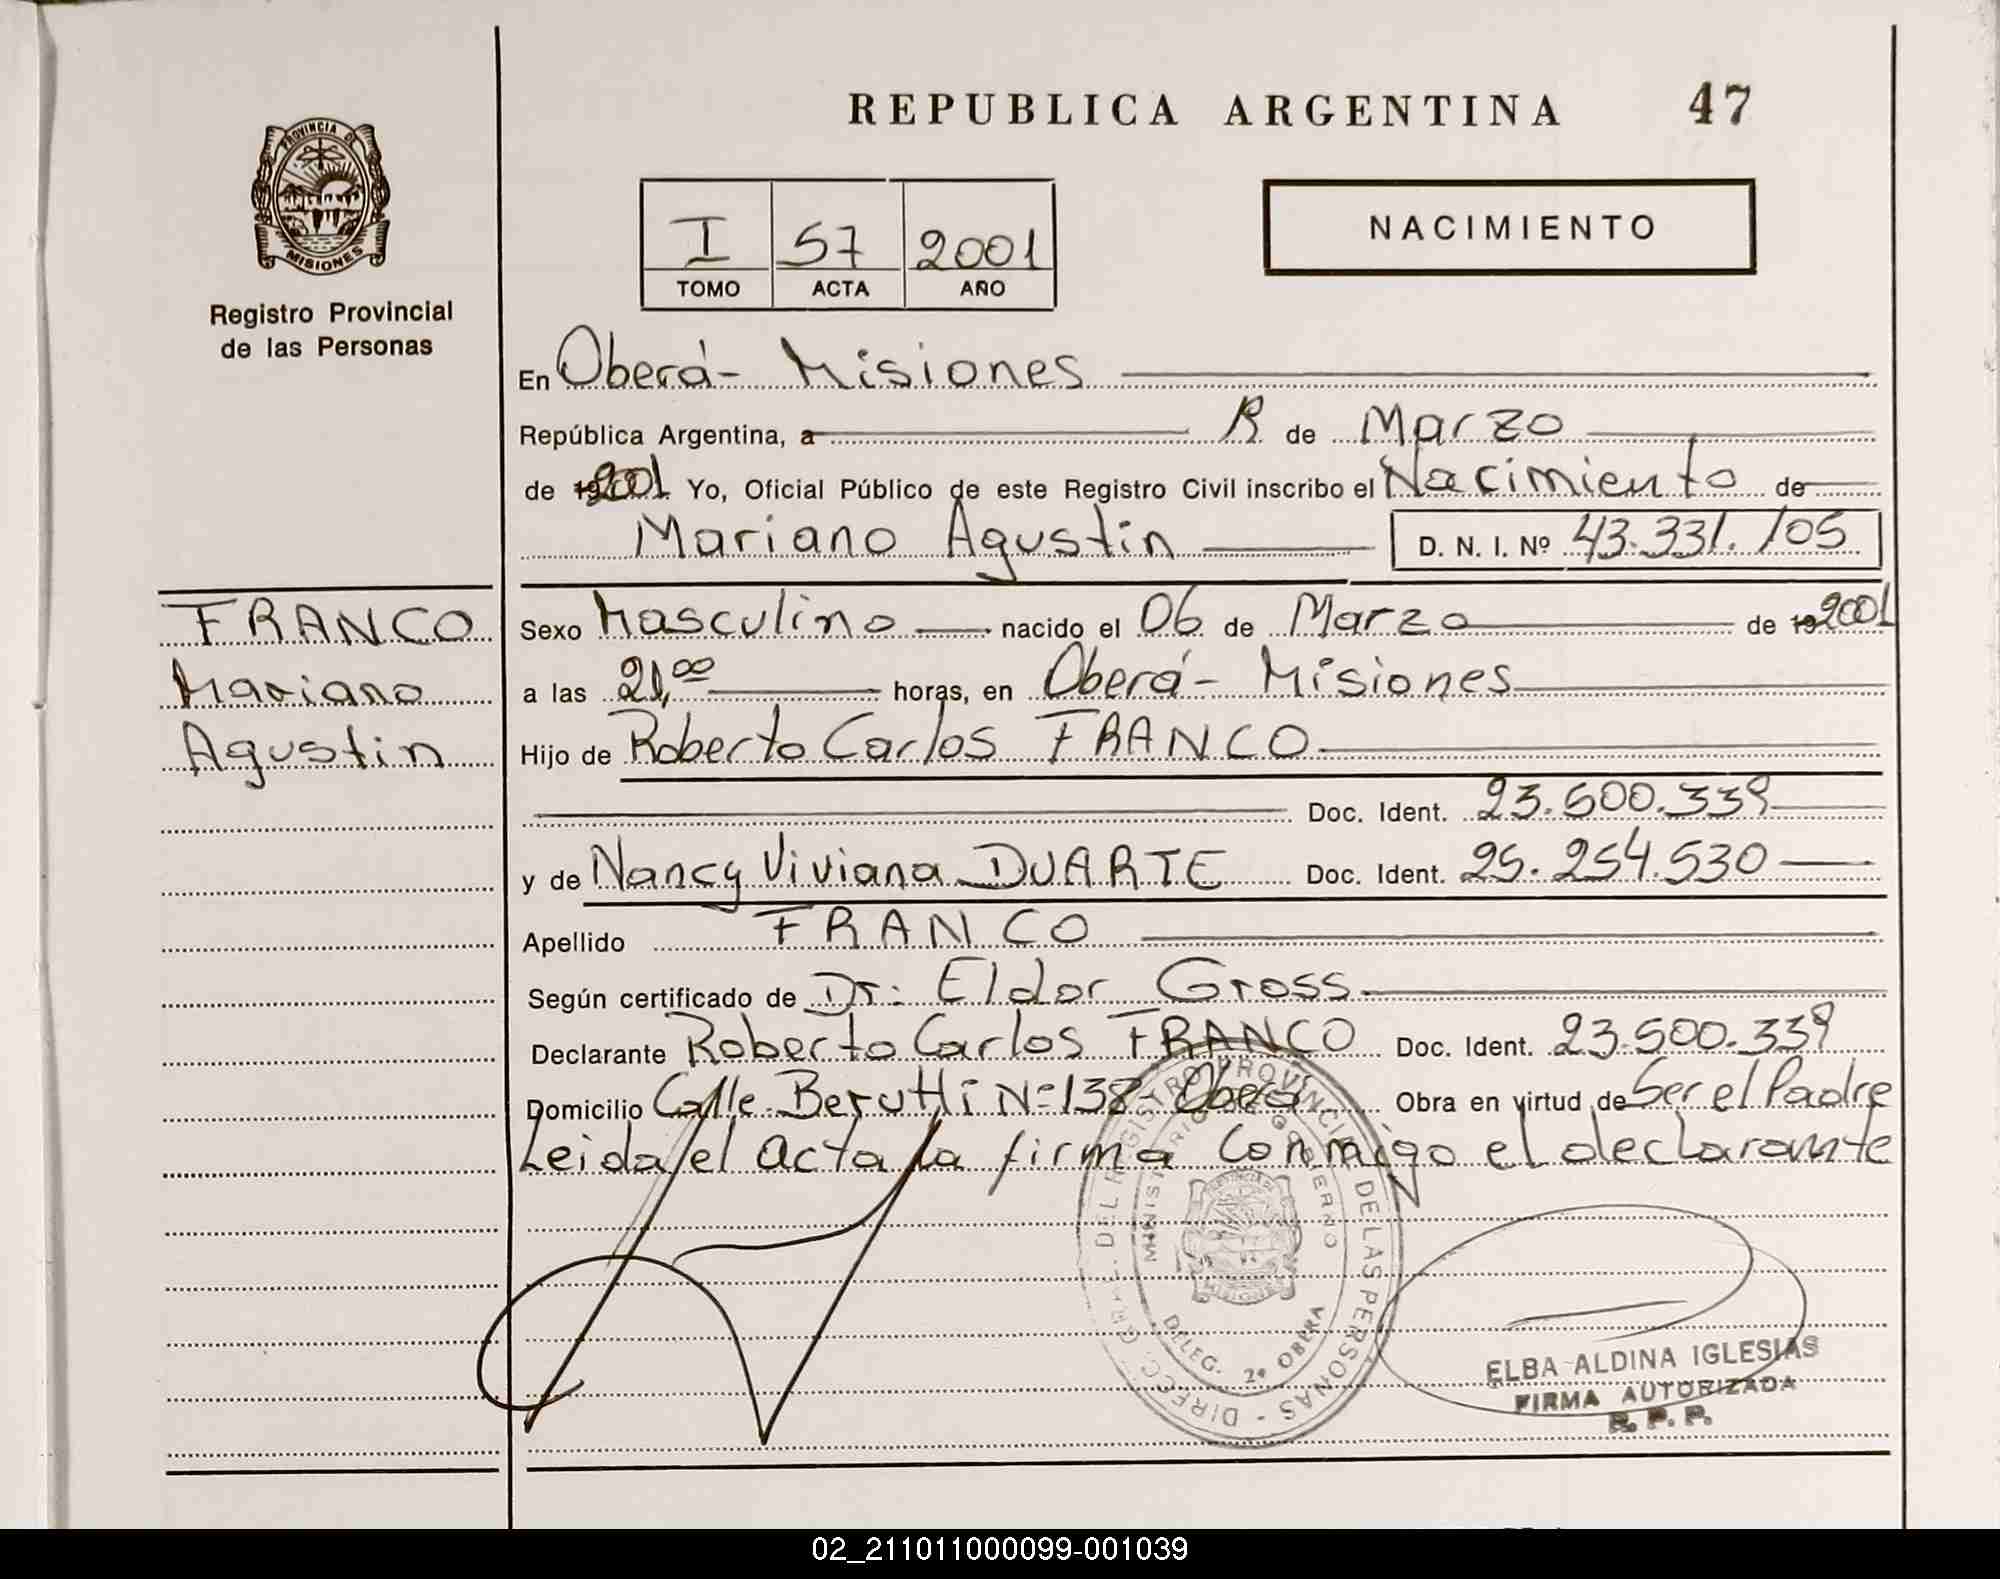 REPUBLICA ARGENTINA 47
PROVINCIA DE MISIONES
Registro Provincial
de las Personas
I 57 2001
TOMO ACTA AÑO
NACIMIENTO
En Oberá- Misiones
República Argentina, a de Marzo
de 2001 Yo, Oficial Público de este Registro Civil inscribo el Nacimiento de
Mariano Agustin D. N. I. Nº 43.331.105
FRANCO
Mariano
Agustin
Sexo Masculino nacido el 06 de Marzo de 19 2001
a las 21,00 horas, en Oberá- Misiones
Hijo de Roberto Carlos FRANCO
Doc. Ident. 23.500.339
y de Nancy Viviana DUARTE Doc. Ident. 25.254.530
Apellido FRANCO
Según certificado de Dr: Eldor Gross
Declarante Roberto Carlos FRANCO Doc. Ident. 23.500.339
Domicilio Calle Berutti Nº 138- Oberá Obra en virtud de Ser el Padre
Leida el acta la firma conmigo el declarante
DIRECC. GRAL. DEL REGISTRO PROVINCIAL DE LAS PERSONAS -
MINISTERIO DE GOBIERNO
DELEG. 2ª OBERA
ELBA ALDINA IGLESIAS
FIRMA AUTORIZADA
R. P. P.
02_211011000099-001039